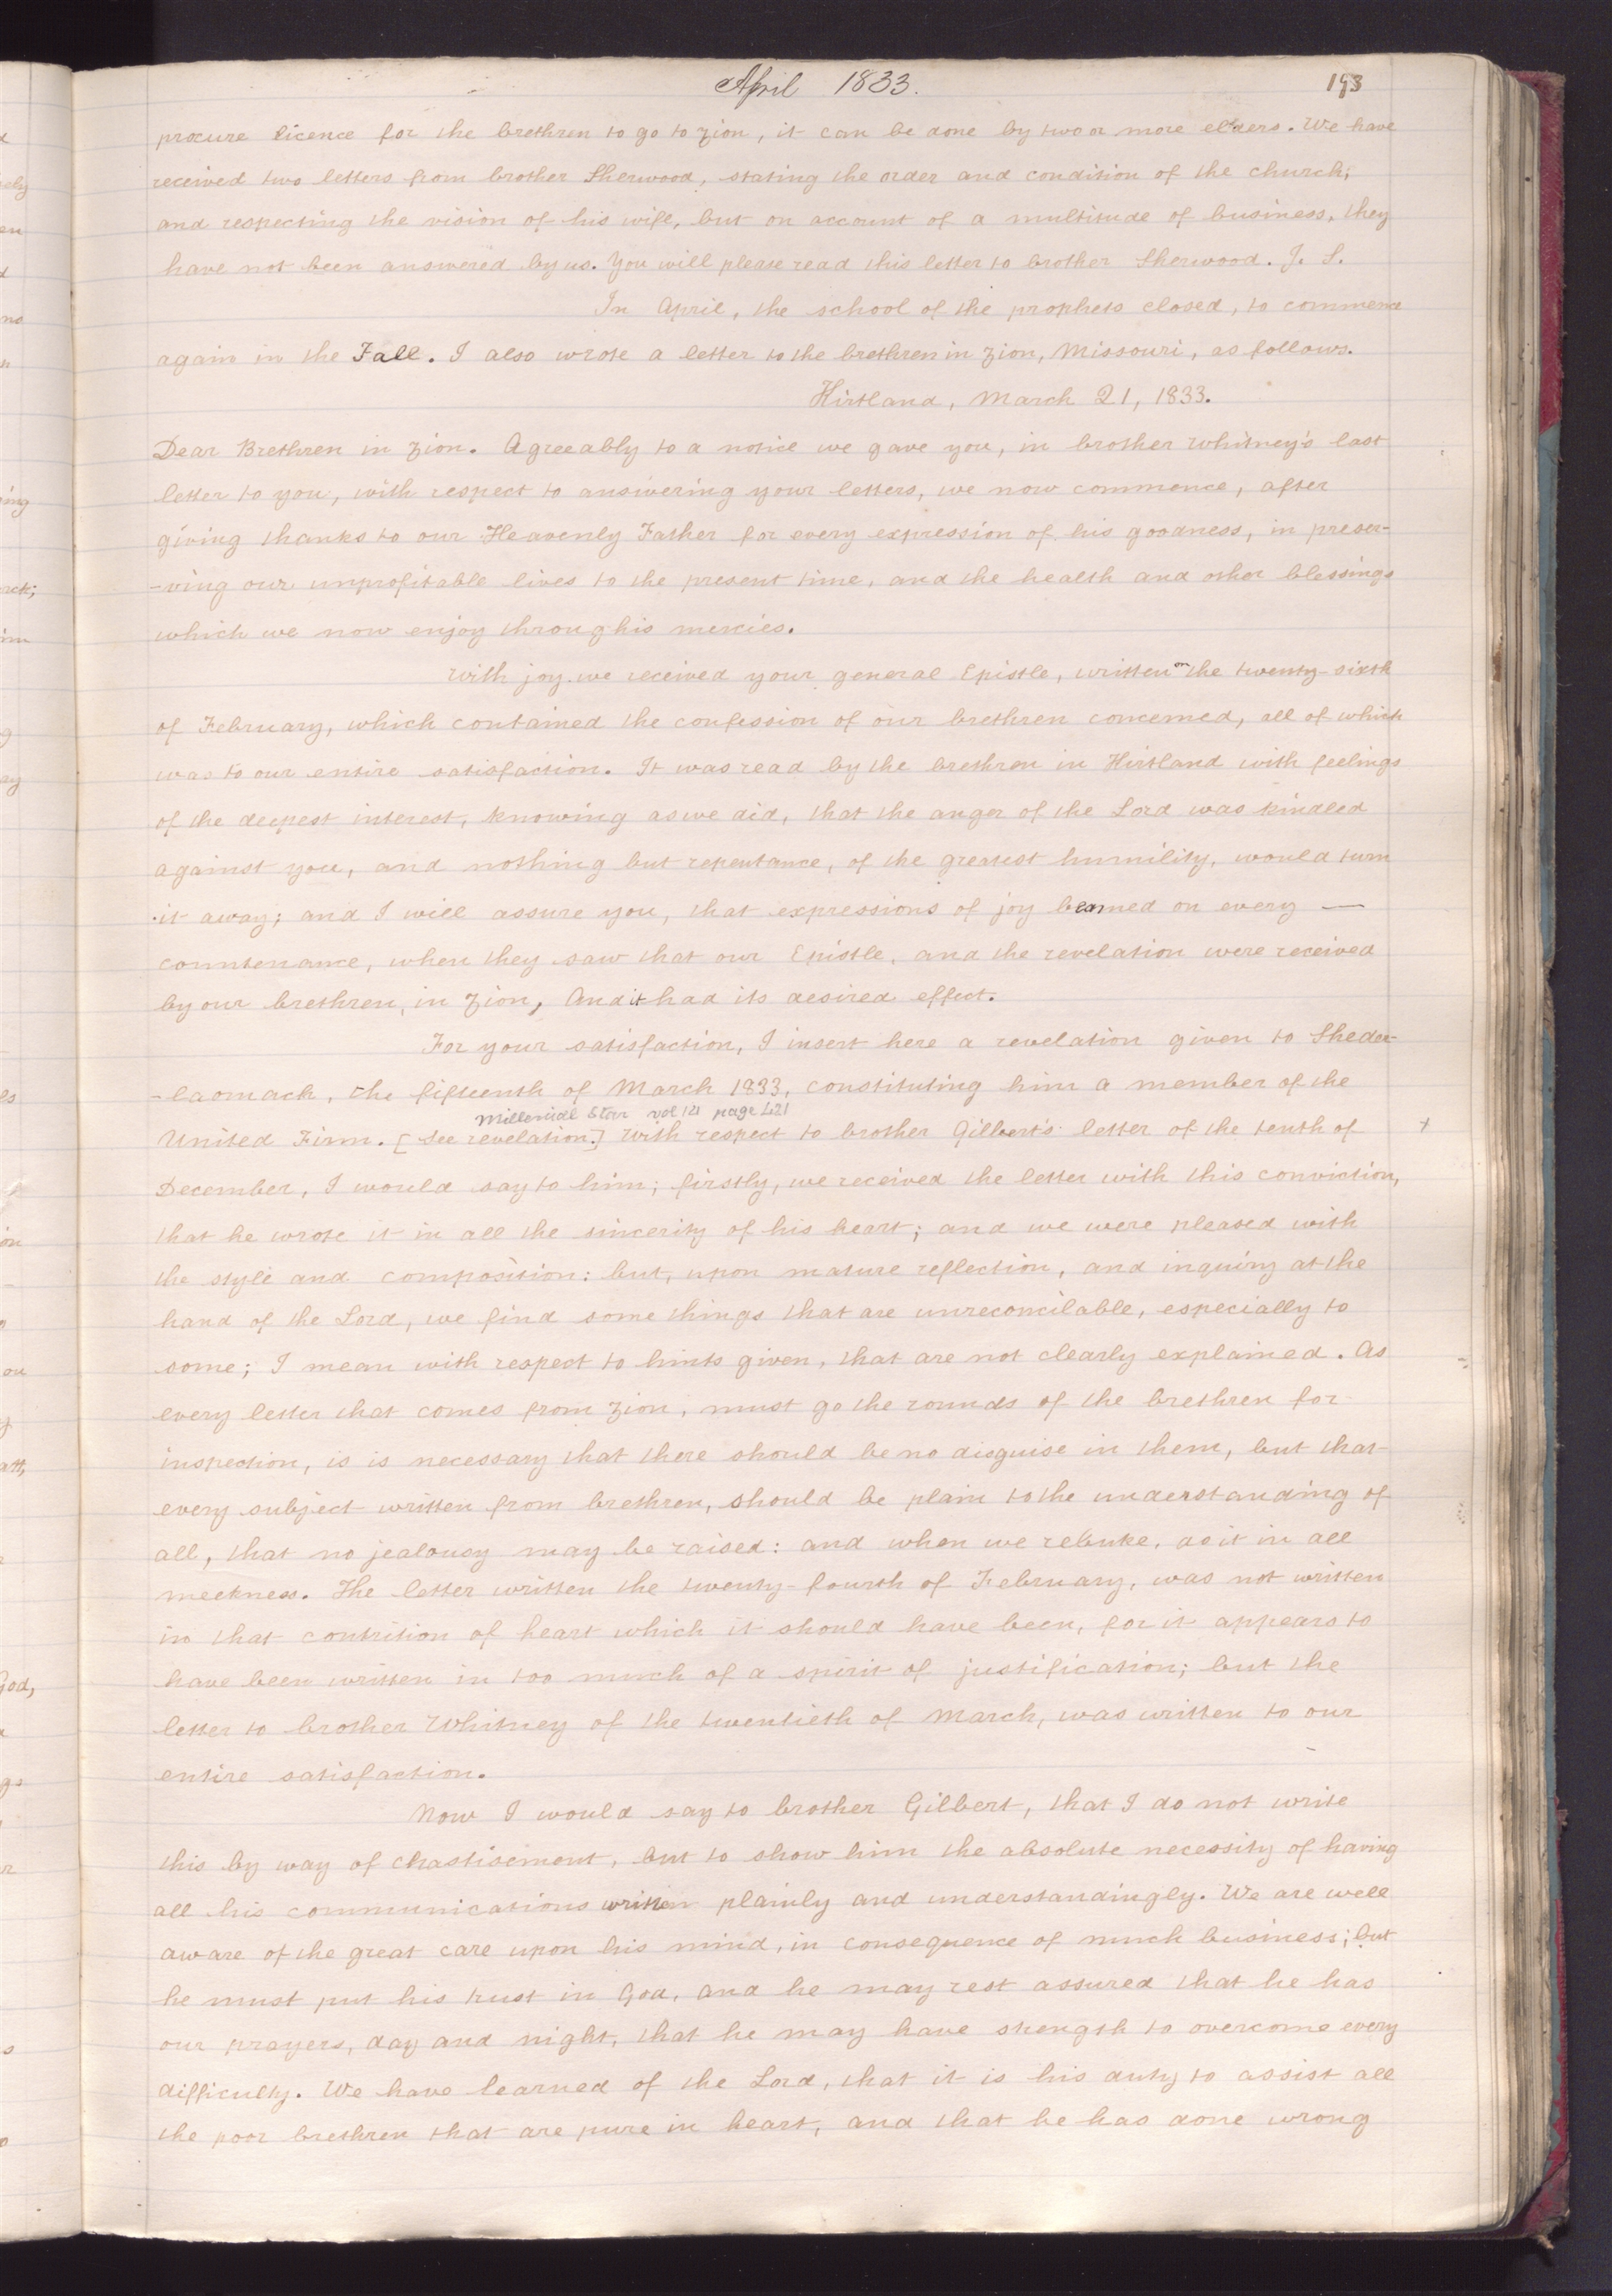 April 1833.
193
procure licence for the brethren to go to Zion, it can be done by two or more elders. We have
received two letters from brother Sherwood, stating the order and condition of the church;
and respecting the vision of his wife, but on account of a multitude of business, they
have not been answered by us. You will please read this letter to brother Sherwood. J. S.
In April, the school of the prophets closed, to commence
again in the Fall. I also wrote a letter to the brethren in Zion, Missouri, as follows.
Kirtland, March 21, 1833.
Dear Brethren in Zion. Agreeably to a notice we gave you, in brother Whitney's last
letter to you, with respect to answering your letters, we now commence, after
giving thanks to our Heavenly Father for every expression of his goodness, in preser-
-ving our unprofitable lives to the present time, and the health and other blessings
which we now enjoy through his mercies.
With joy we received your general Epistle, written on the twenty-sixth
of February, which contained the confession of our brethren concerned, all of which
was to our entire satisfaction. It was read by the brethren in Kirtland with feelings
of the deepest interest, knowing as we did, that the anger of the Lord was kindled
against you, and nothing but repentance, of the greatest humility, would turn
it away; and I will assure you, that expressions of joy beamed on every —
countenance, when they saw that our Epistle, and the revelation were received
by our brethren, in Zion, And it had its desired effect.
For your satisfaction, I insert here a revelation given to Sheder-
-laomach, the fifteenth of March 1833, constituting him a member of the
Millenial Star vol 14 page 421
United Firm. [See revelation.] With respect to brother Gilbert's letter of the tenth of +
December, I would say to him; firstly, we received the letter with this conviction,
that he wrote it in all the sincerity of his heart; and we were pleased with
the style and composition: but, upon mature reflection, and inquiry at the
hand of the Lord, we find some things that are unreconcilable, especially to
some; I mean with respect to hints given, that are not clearly explained. As
every letter that comes from Zion, must go the rounds of the brethren for
inspection, is is necessary that there should be no disguise in them, but that
every subject written from brethren, should be plain to the understanding of
all, that no jealousy may be raised: and when we rebuke, do it in all
meekness. The letter written the twenty-fourth of February, was not written
in that contrition of heart which it should have been, for it appears to
have been written in too much of a spirit of justification; but the
letter to brother Whitney of the twentieth of March, was written to our
entire satisfaction.
Now I would say to brother Gilbert, that I do not write
this by way of chastisement, but to show him the absolute necessity of having
all his communications written plainly and understandingly. We are well
aware of the great care upon his mind, in consequence of much business; but
he must put his trust in God, and he may rest assured that he has
our prayers, day and night, that he may have strength to overcome every
difficulty. We have learned of the Lord, that it is his duty to assist all
the poor brethren that are pure in heart, and that he has done wrong